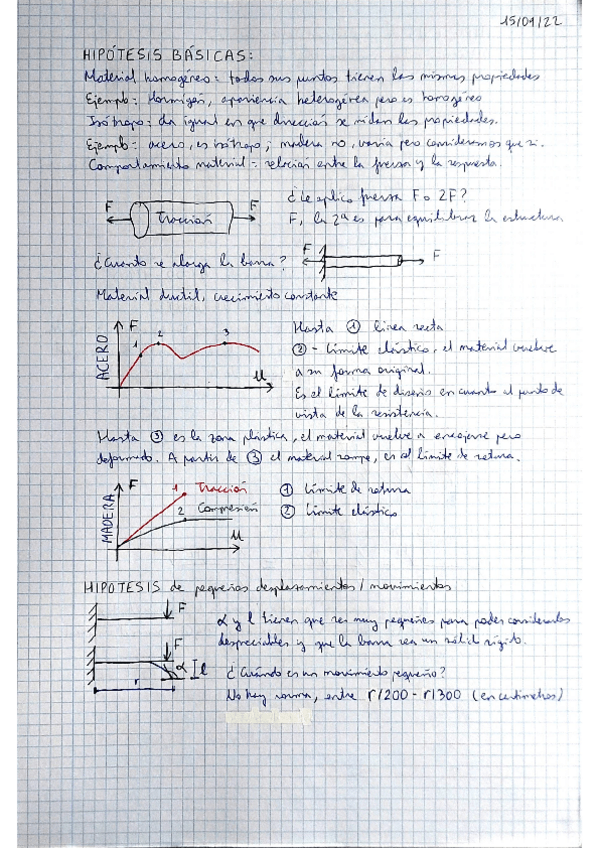 15/09/22
HIPÓTESIS BÁSICAS:
Material homogéneo: todos sus puntos tienen las mismas propiedades
Ejemplo: Hormigón, apariencia heterogénea pero es homogéneo
Isótropo: da igual en que dirección se miden las propiedades.
Ejemplo: acero, es isótropo; madera no, varía pero consideramos que sí.
Comportamiento material = relación entre la fuerza y la respuesta.
F Tracción F
¿Le aplico fuerza F o 2F?
F, la 2ª es para equilibrar la estructura
¿Cuanto se alarga la barra? F F
Material ductil, crecimiento constante
ACERO F 1 2 3 μ
Hasta ① línea recta
② - Límite elástico, el material vuelve
a su forma original.
Es el límite de diseño en cuanto al punto de
vista de la resistencia.
Hasta ③ es la zona plástica, el material vuelve a encogerse pero
deformado. A partir de ③ el material rompe, es el límite de rotura.
MADERA F 1 Tracción 2 Compresión μ
① Límite de rotura
② Límite elástico
HIPOTESIS de pequeños desplazamientos / movimientos
F
α y l tienen que ser muy pequeños para poder considerarlos
despreciables y que la barra sea un sólido rígido.
F α l r
¿Cuándo es un movimiento pequeño?
No hay norma, entre r/200 - r/300 (en centímetros)